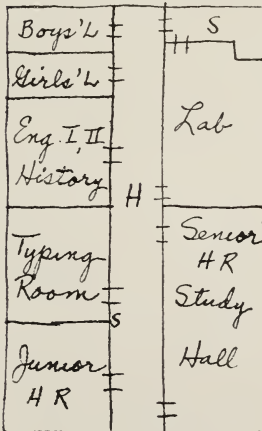 Boys' L
Girls' L
Eng. I, II
History
Typing
Room
Junior
H R
H
S
S
Lab
Senior
H R
Study
Hall